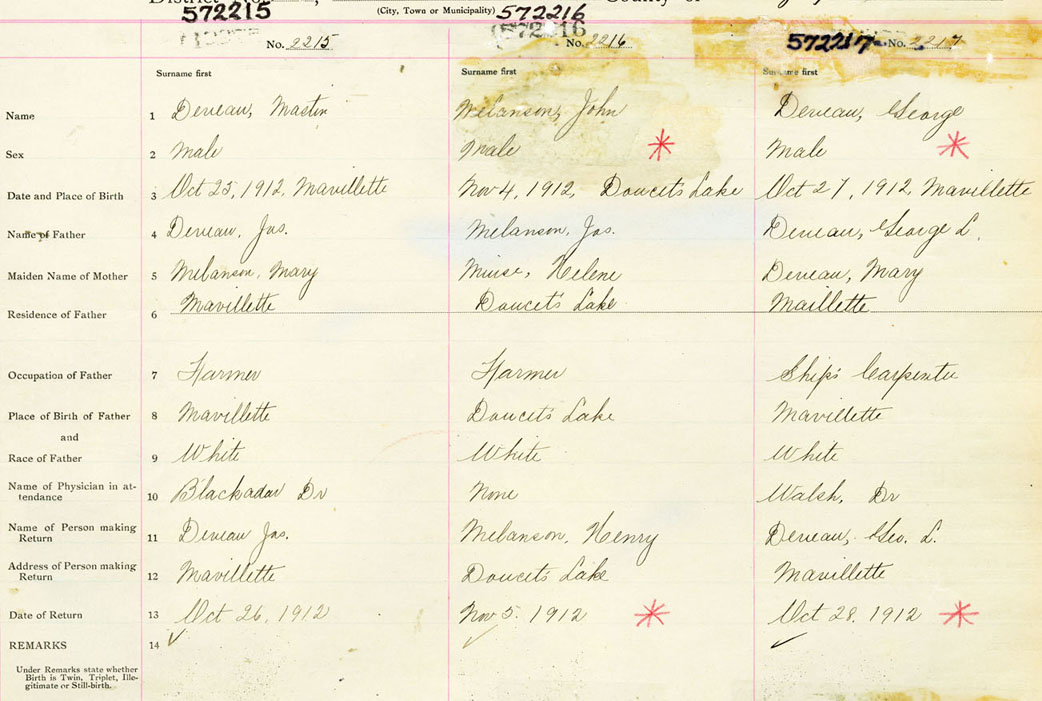 572215 (City, Town or Municipality) 572216
No. 2215 572216 No. 2216 572217 No. 2217
Surname first Surname first Surname first
Name 1 Deveau, Martin Melanson, John Deveau, George
Sex 2 Male Male Male
Date and Place of Birth 3 Oct 25, 1912, Mavillette Nov 4, 1912, Doucets Lake Oct 27, 1912, Mavillette
Name of Father 4 Deveau, Jos. Melanson, Jos. Deveau, George L.
Maiden Name of Mother 5 Melanson, Mary Muise, Helene Deveau, Mary
Residence of Father 6 Mavillette Doucets Lake Maillette
Occupation of Father 7 Farmer Farmer Ship's Carpenter
Place of Birth of Father 8 Mavillette Doucets Lake Mavillette
and
Race of Father 9 White White White
Name of Physician in at-
tendance 10 Blackadar Dr None Walsh, Dr
Name of Person making
Return 11 Deveau Jos. Melanson, Henry Deveau, Geo. L.
Address of Person making
Return 12 Mavillette Doucets Lake Mavillette
Date of Return 13 Oct 26, 1912 Nov 5. 1912 Oct 28. 1912
REMARKS 14
Under Remarks state whether
Birth is Twin, Triplet, Ille-
gitimate or Still-birth.